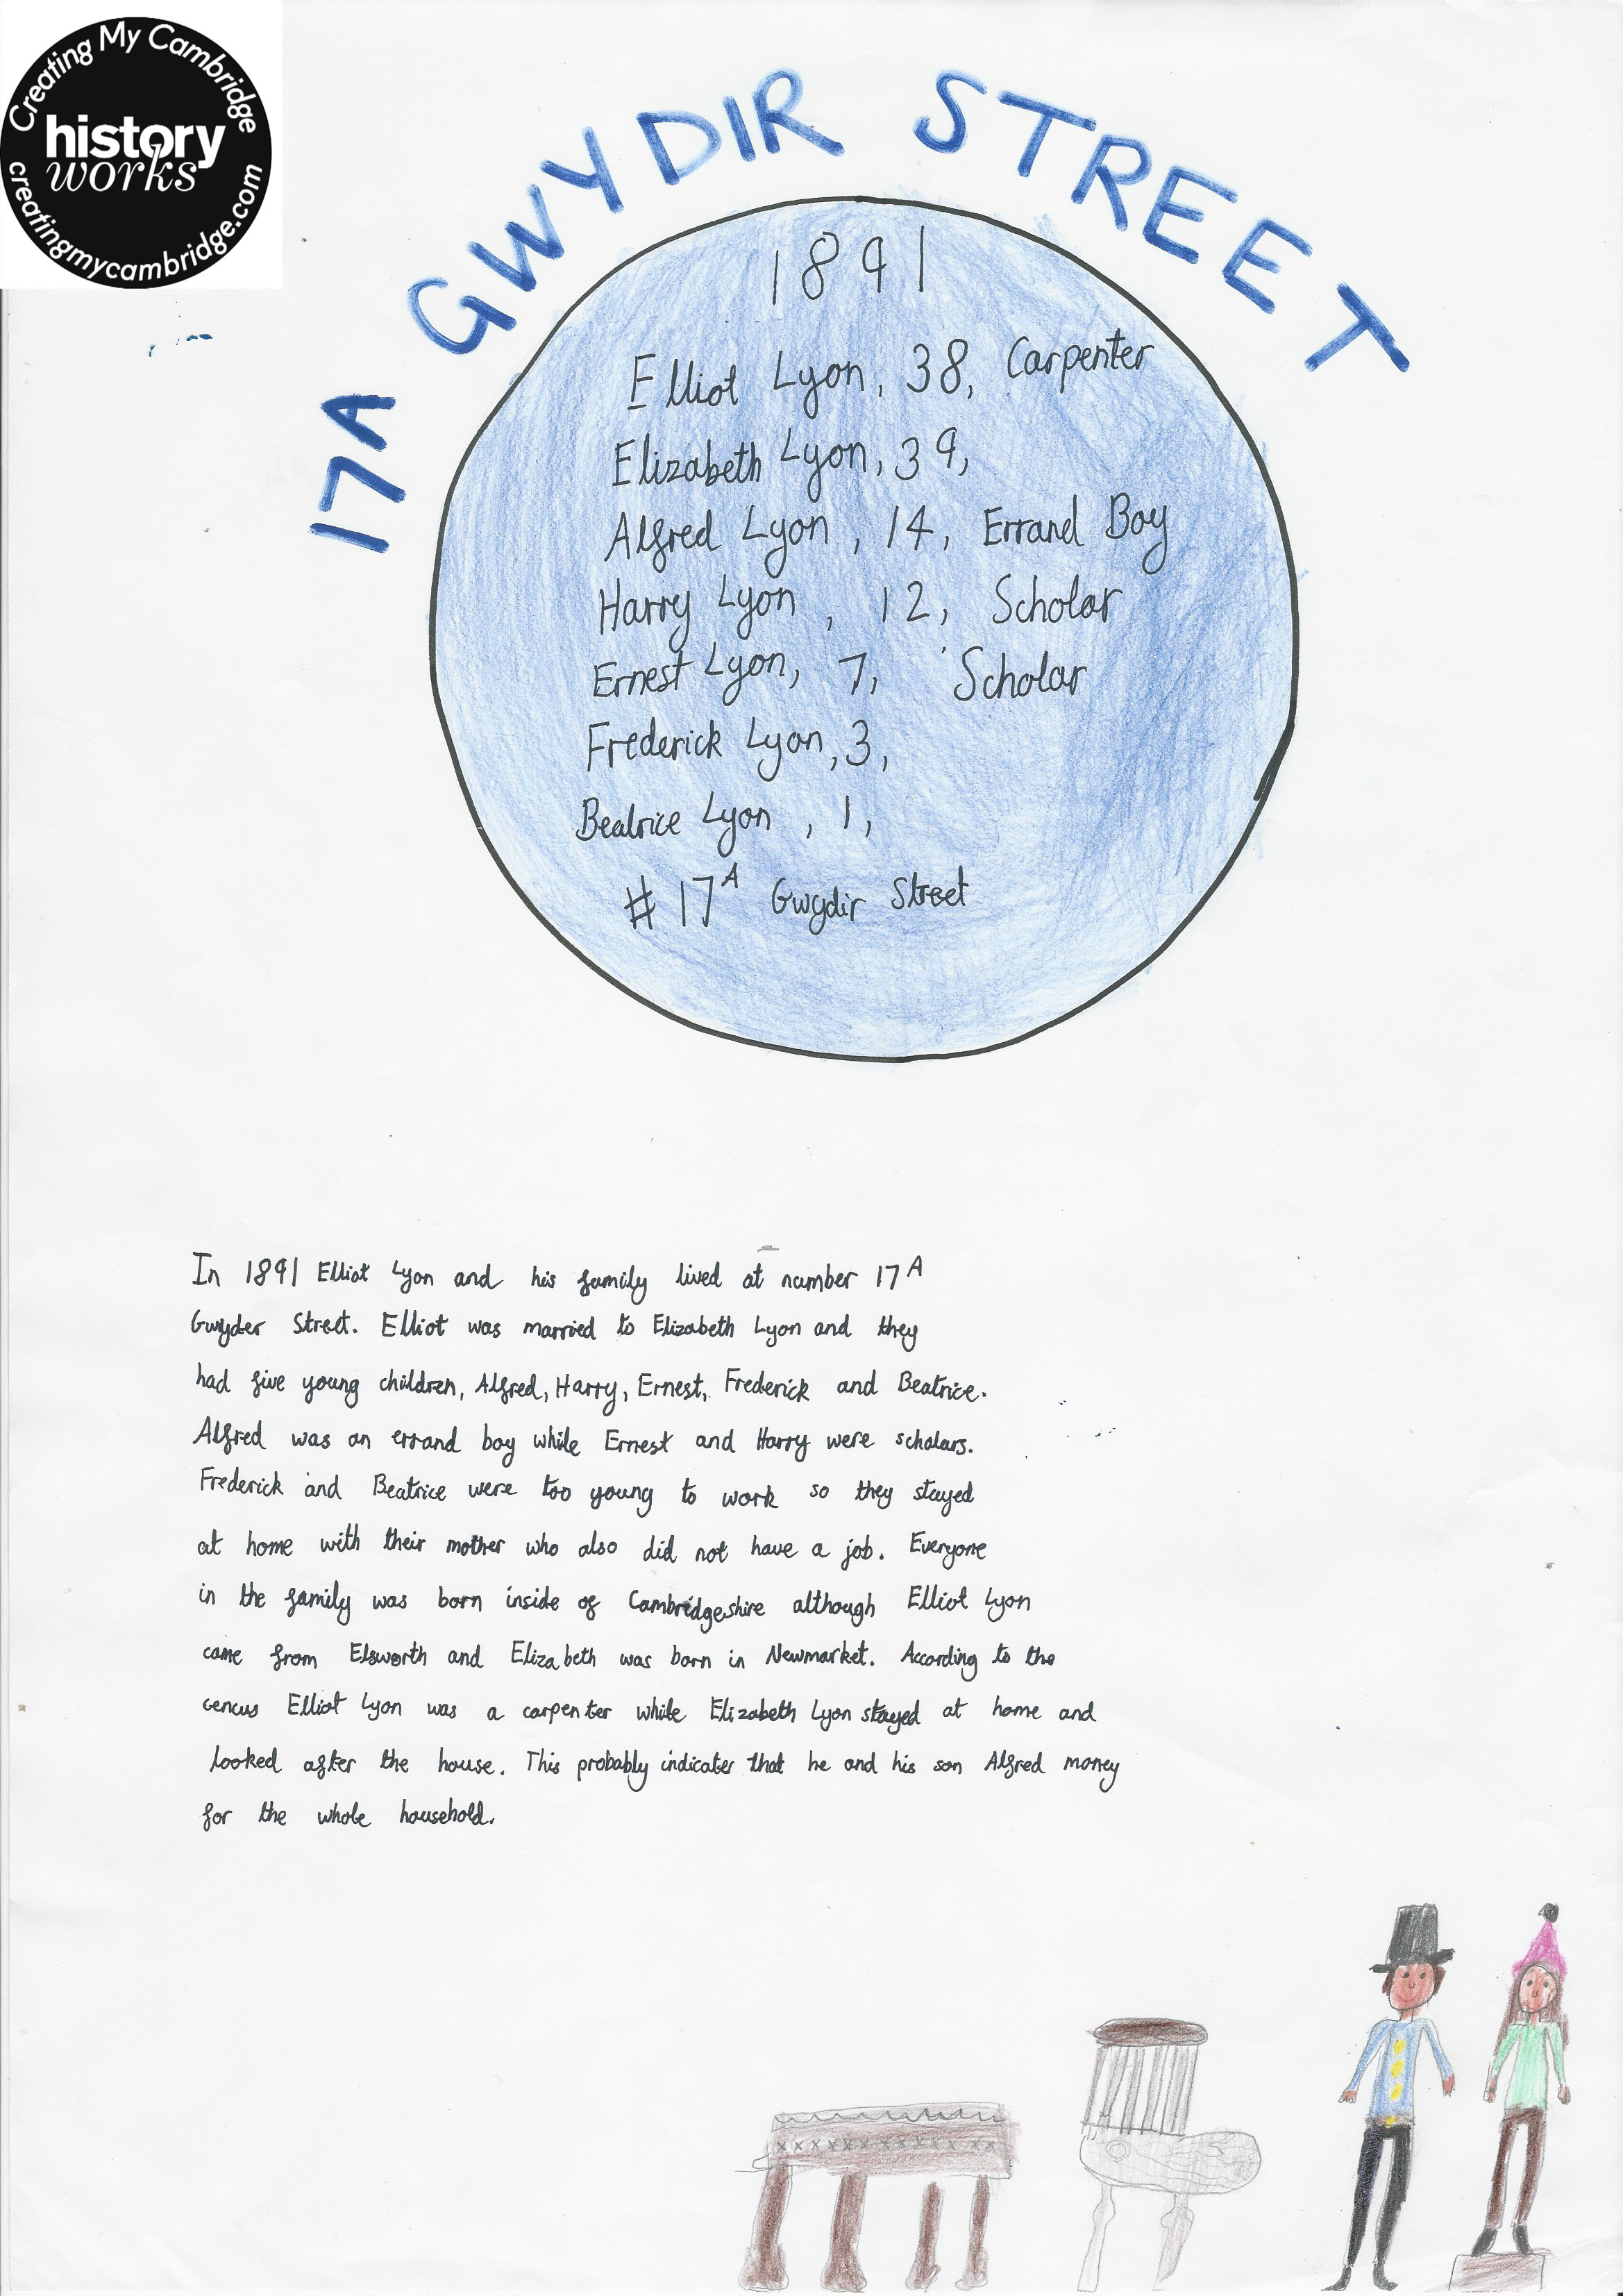 Creating My Cambridge
history
works
creatingmycambridge.com
17A GWYDIR STREET
1891
Elliot Lyon, 38, Carpenter
Elizabeth Lyon, 39,
Alfred Lyon, 14, Errand Boy
Harry Lyon, 12, Scholar
Ernest Lyon, 7, Scholar
Frederick Lyon, 3,
Beatrice Lyon, 1,
# 17A Gwydir Street
In 1891 Elliot Lyon and his family lived at number 17A
Gwyder Street. Elliot was married to Elizabeth Lyon and they
had five young children, Alfred, Harry, Ernest, Frederick and Beatrice.
Alfred was an errand boy while Ernest and Harry were scholars.
Frederick and Beatrice were too young to work so they stayed
at home with their mother who also did not have a job. Everyone
in the family was born inside of Cambridgeshire although Elliot Lyon
came from Elsworth and Elizabeth was born in Newmarket. According to the
cencus Elliot Lyon was a carpenter while Elizabeth Lyon stayed at home and
looked after the house. This probably indicater that he and his son Alfred money
for the whole household.